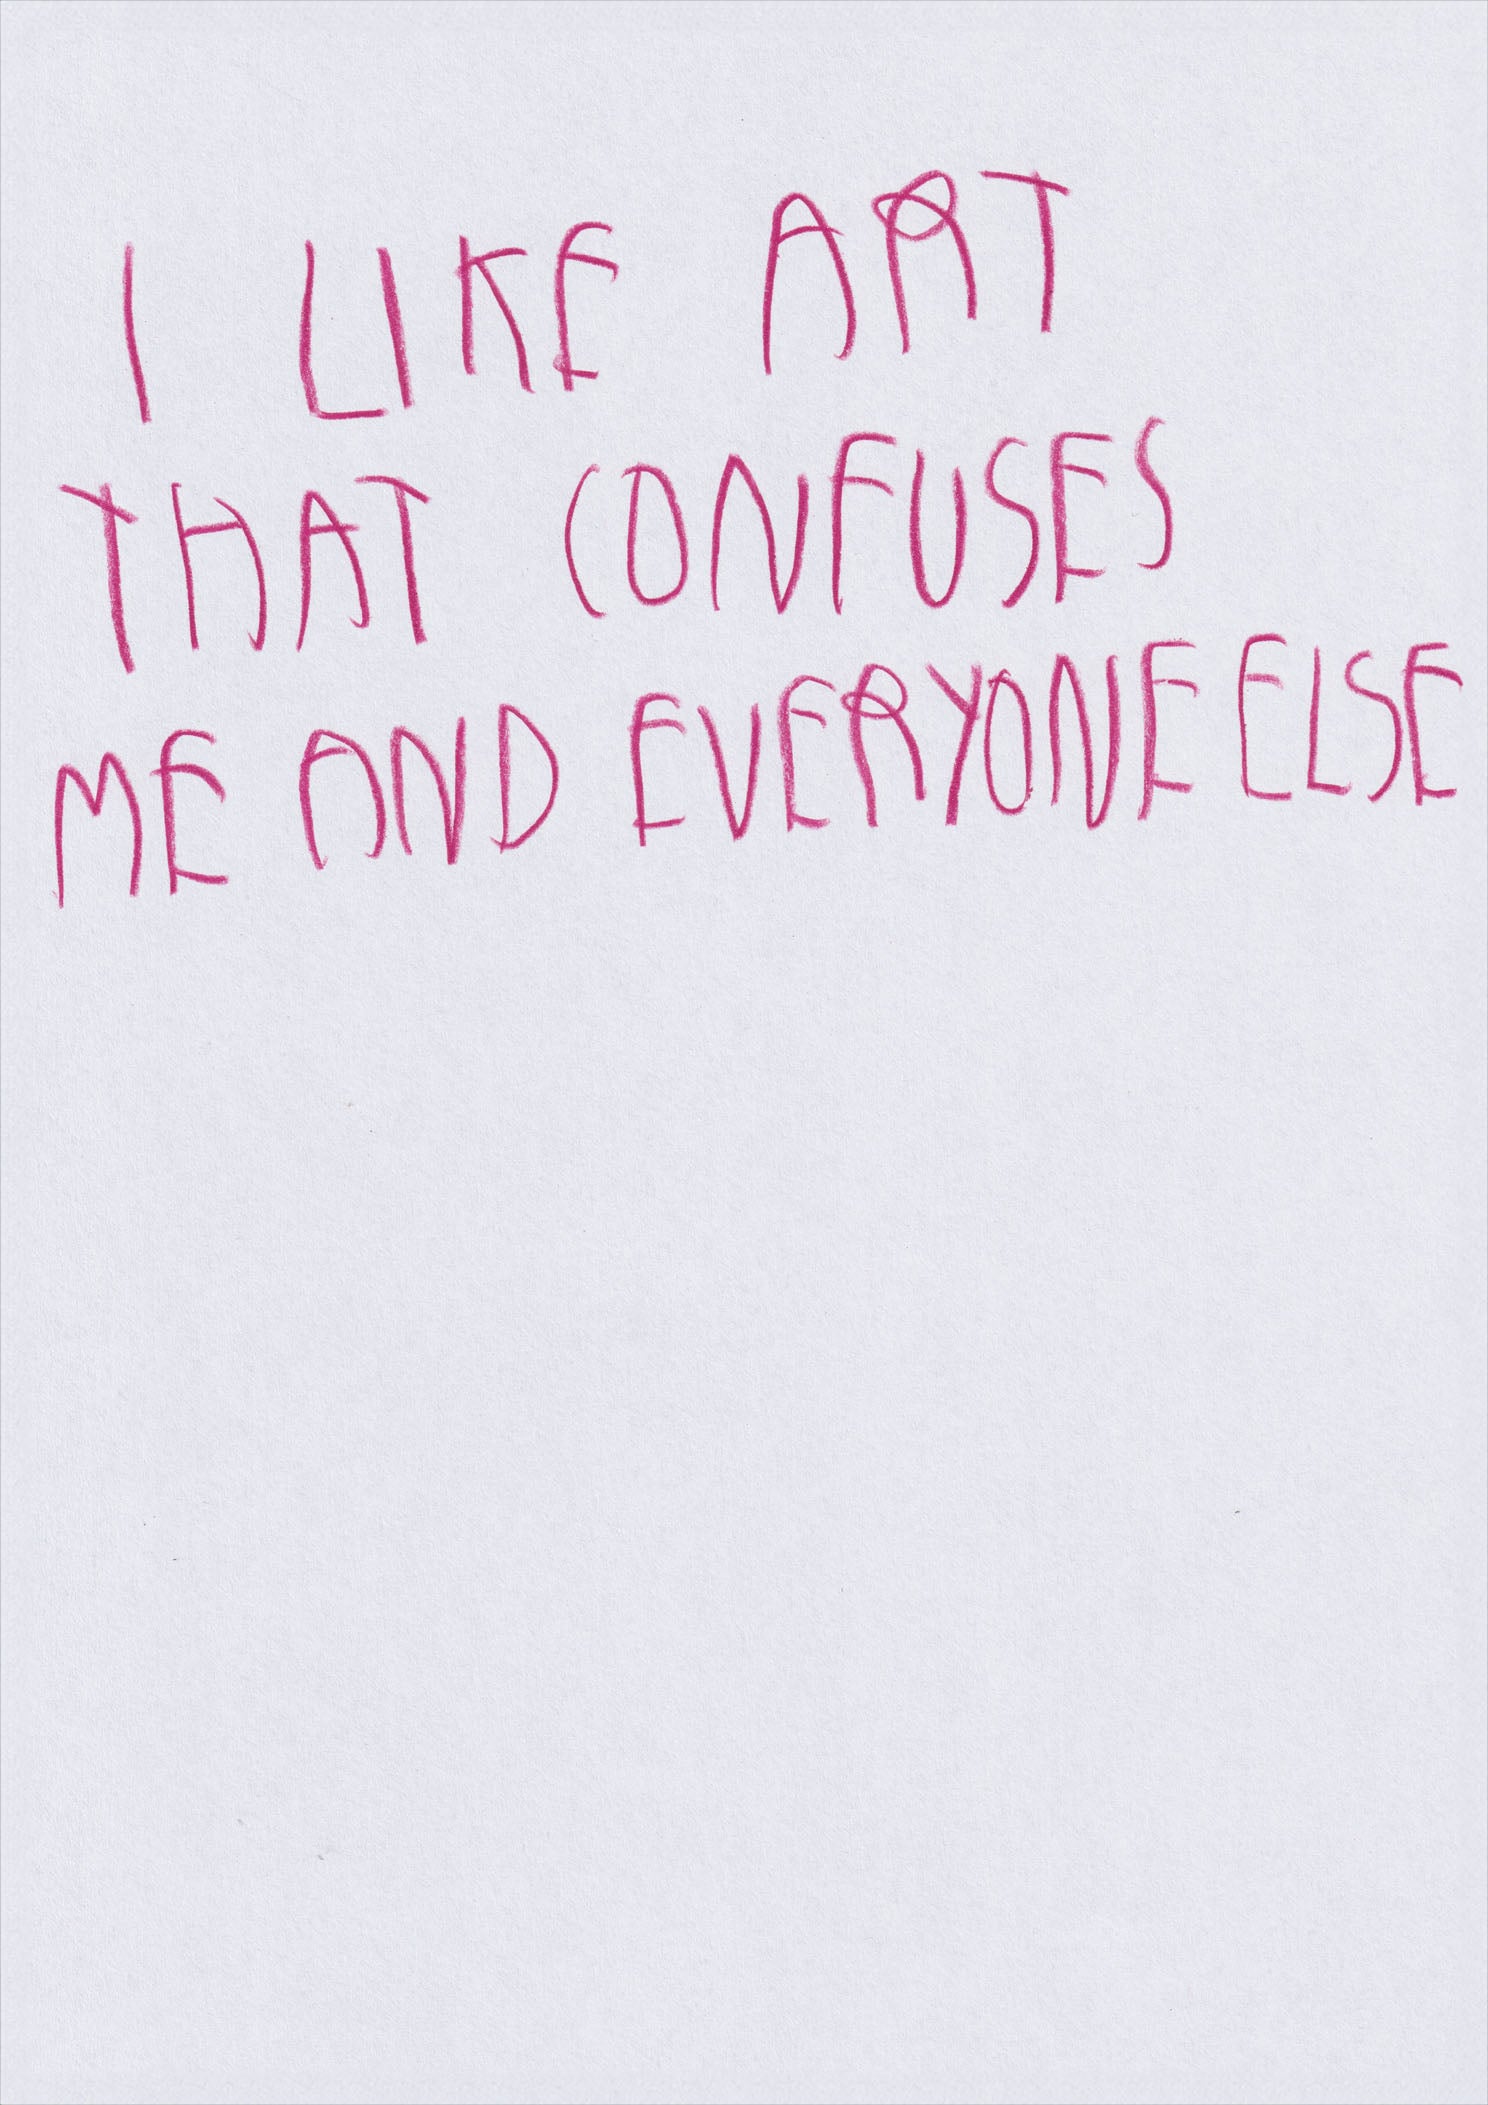 I LIKE ART
THAT CONFUSES
ME AND EVERYONE ELSE